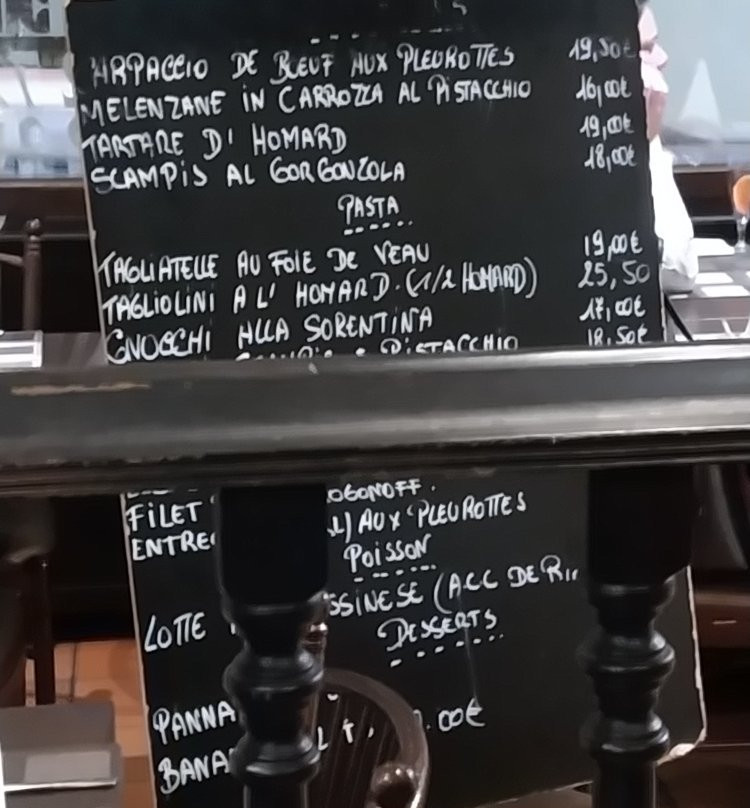 ARPACCIO DE BŒUF AUX PLEUROTTES 19,50€
MELENZANE IN CARROZZA AL PISTACCHIO 16,00€
TARTARE D' HOMARD 19,00€
SCAMPIS AL GORGONZOLA 18,00€
PASTA
TAGLIATELLE AU FOIE DE VEAU 19,00€
TAGLIOLINI A L' HOMARD. (1/2 HOMARD) 25,50
GNOCCHI ALLA SORENTINA 17,00€
PISTACCHIO 18,50€
OGONOFF.
FILET
ENTREC L) AUX PLEUROTTES
POISSON
LOTTE SSINESE (ACC DE RI
DESSERTS
PANNA .00€
BANA